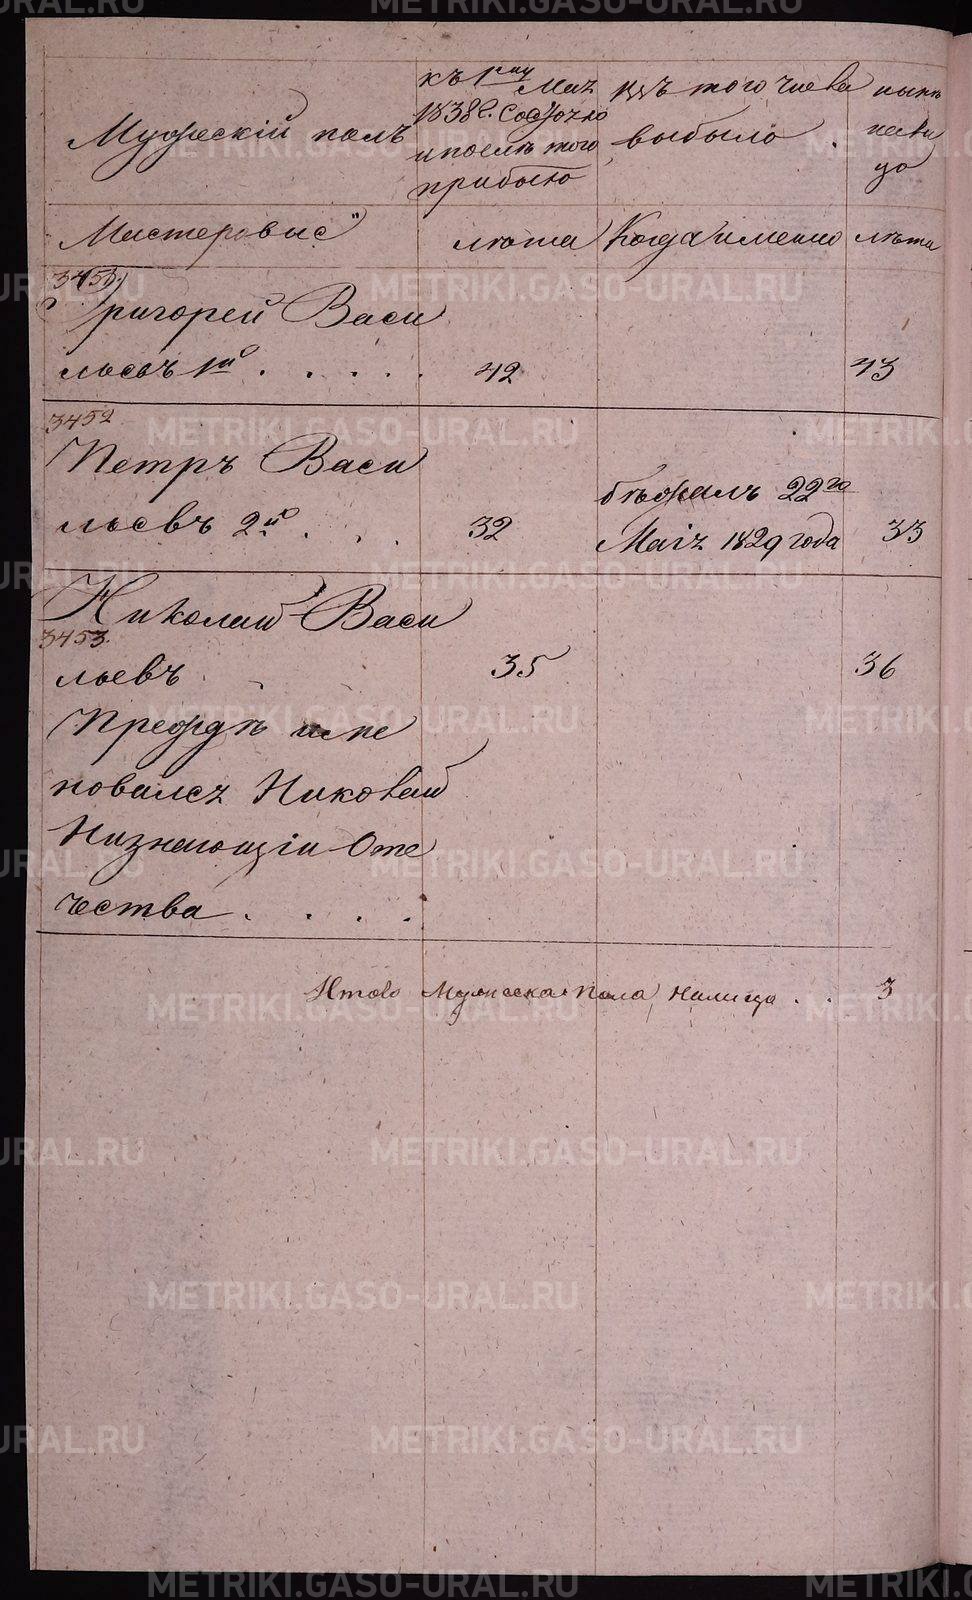 Мужескій полъ
къ 1му Маія
1838 г. Состояло
и после того
прибыло
изъ того числа
выбыло
ныне
нали
цо
Мастеровыѣ
лѣта
Когда именно
лѣта
3451
Григорей Васи
льевъ 1й . . . . . 42 43
3452
Петръ Васи
льевъ 2й . . . 32
бѣжалъ 22го
Маія 1829 года 33
Николай Васи
3453.
льевъ . . 35 36
Преждѣ име
новался Николай
Низнающій Оте
чества . . . .
Итово Мужеска Пола Налицо . . 3
METRIKI.GASO-URAL.RU